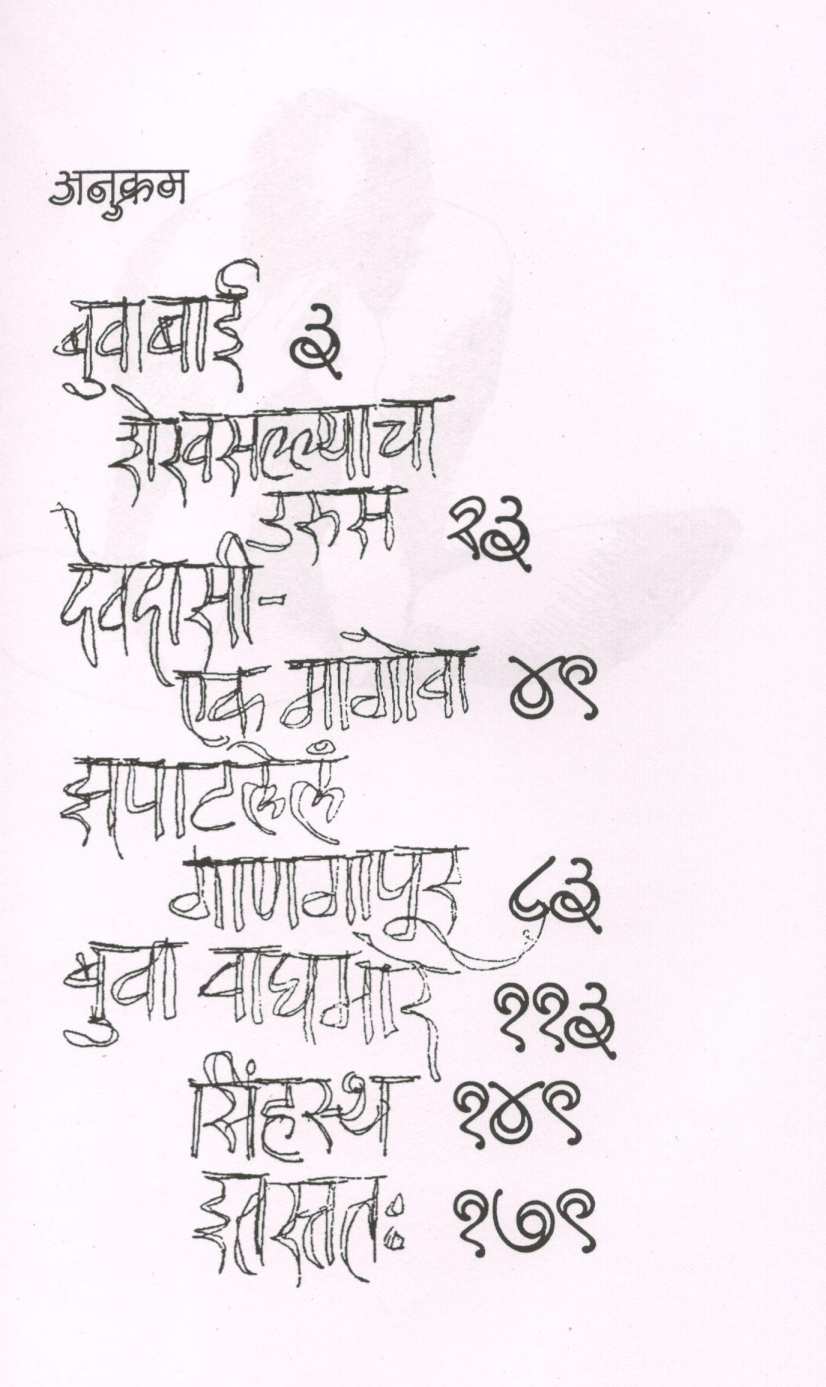 अनुक्रम
बुवाबाई ३
शेखसल्ल्याचा
उरुस २३
देवदासी-
एक मागोवा ४९
झपाटलेलं
गाणगापूर ८३
बुवा वाघमारे ११३
सिंहस्थ १४९
इतस्ततः १७९